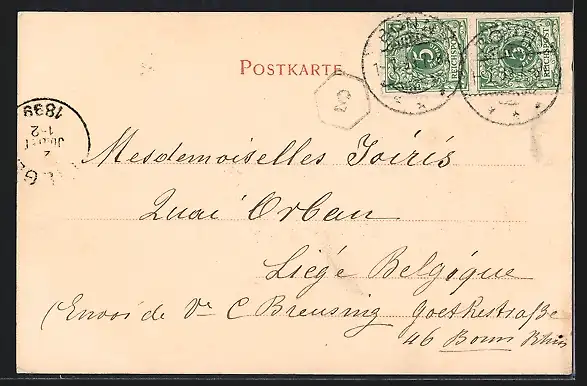 POSTKARTE
5
REICHSPOST
5
REICHSPOST
BONN
BONN
1899
1-2
Mesdemoiselles Joiris
Quai Orban
Liége Belgique
(Envoi de Vve C Breusing Goethestraße
46 Bonn Rhin